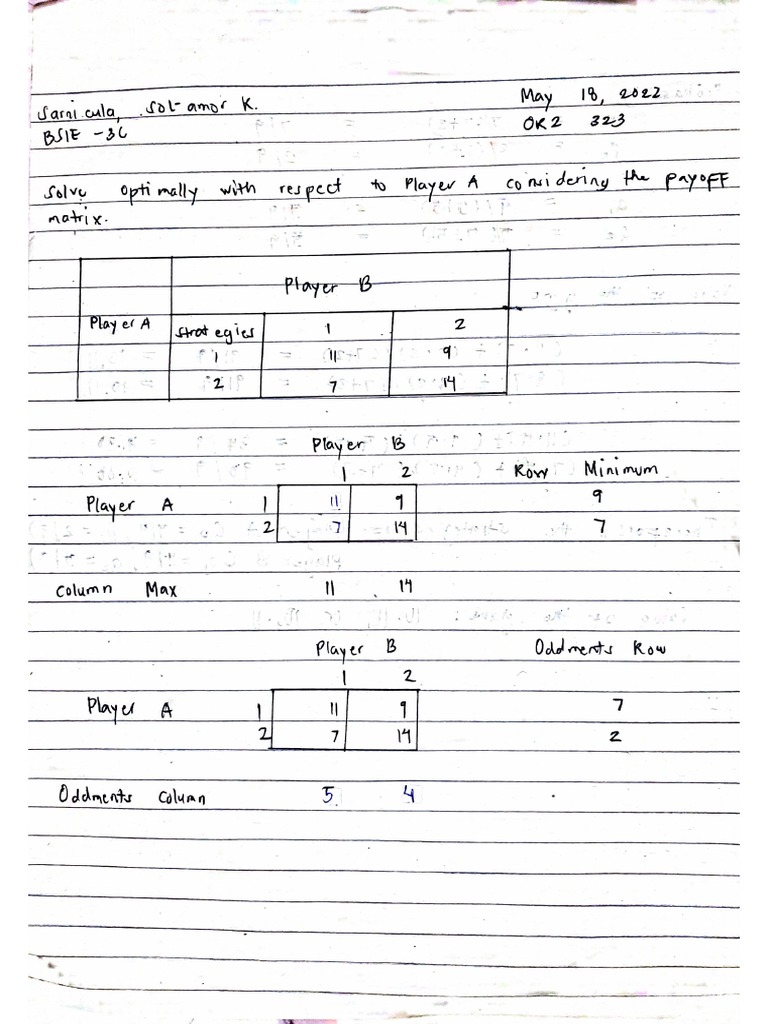 Sarnicula, Sol-amor K. May 18, 2022
BSIE -3C OR2 323
Solve optimally with respect to Player A considering the payoff
matrix.
Player B
Player A strategies 1 2
1 11 9
2 7 14
Player B
1 2 Row Minimum
Player A 1 11 9 9
2 7 14 7
Column Max 11 14
Player B Oddments Row
1 2
Player A 1 11 9 7
2 7 14 2
Oddments Column 5 4